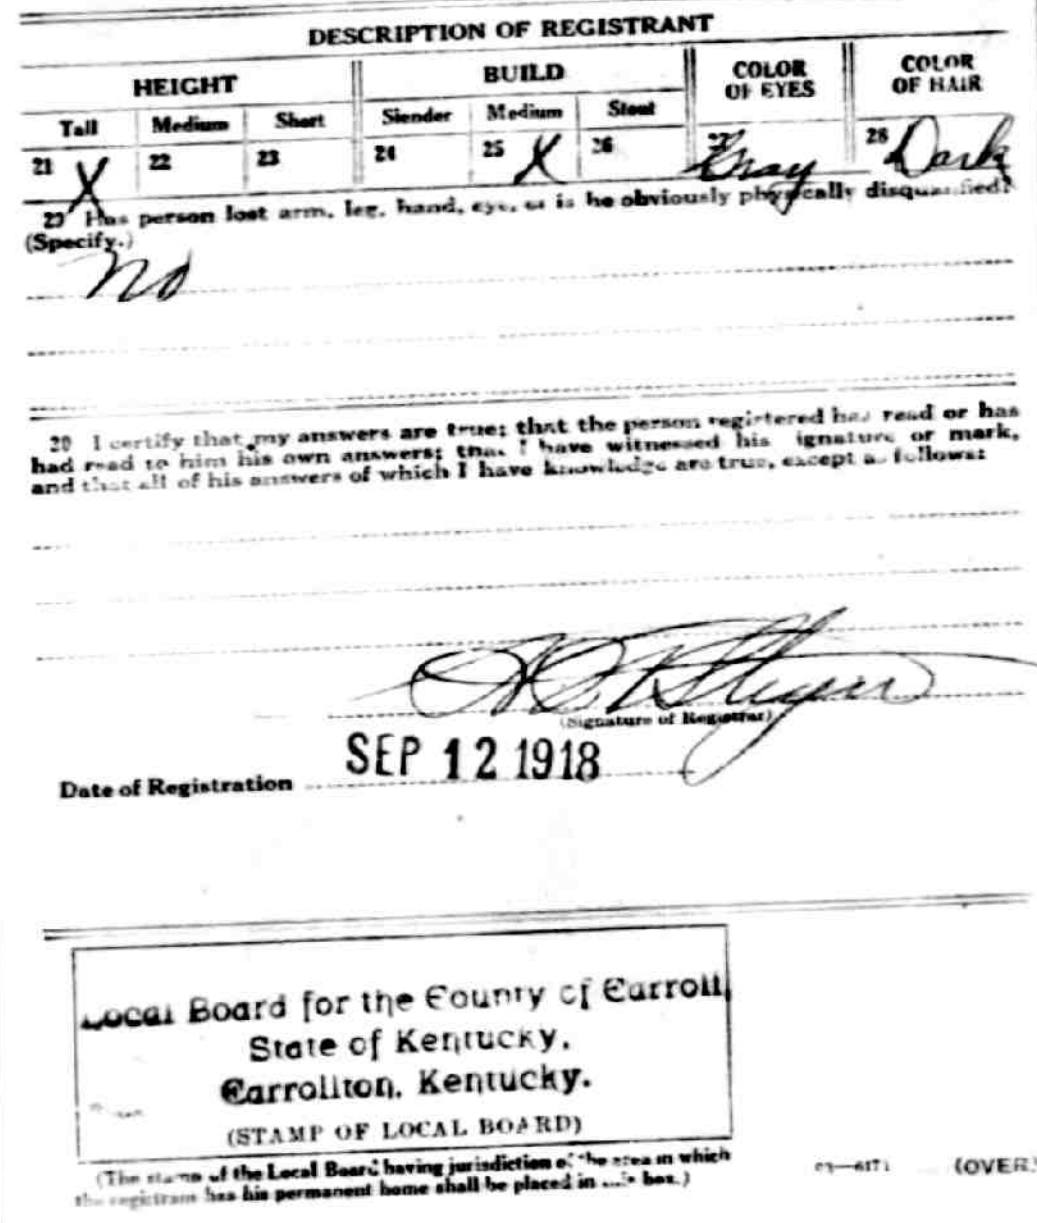 DESCRIPTION OF REGISTRANT
HEIGHT BUILD COLOR OF EYES COLOR OF HAIR
Tall Medium Short Slender Medium Stout
21 X 22 23 24 25 X 26 27 Gray 28 Dark
29 Has person lost arm, leg, hand, eye, or is he obviously physically disqualified?
(Specify.)
no
30 I certify that my answers are true; that the person registered has read or has
had read to him his own answers; that I have witnessed his signature or mark,
and that all of his answers of which I have knowledge are true, except as follows:
(Signature of Registrar)
Date of Registration SEP 12 1918
Local Board for the County of Carroll,
State of Kentucky,
Carrollton, Kentucky.
(STAMP OF LOCAL BOARD)
(The stamp of the Local Board having jurisdiction of the area in which
the registrant has his permanent home shall be placed in this box.)
03—6171 (OVER)